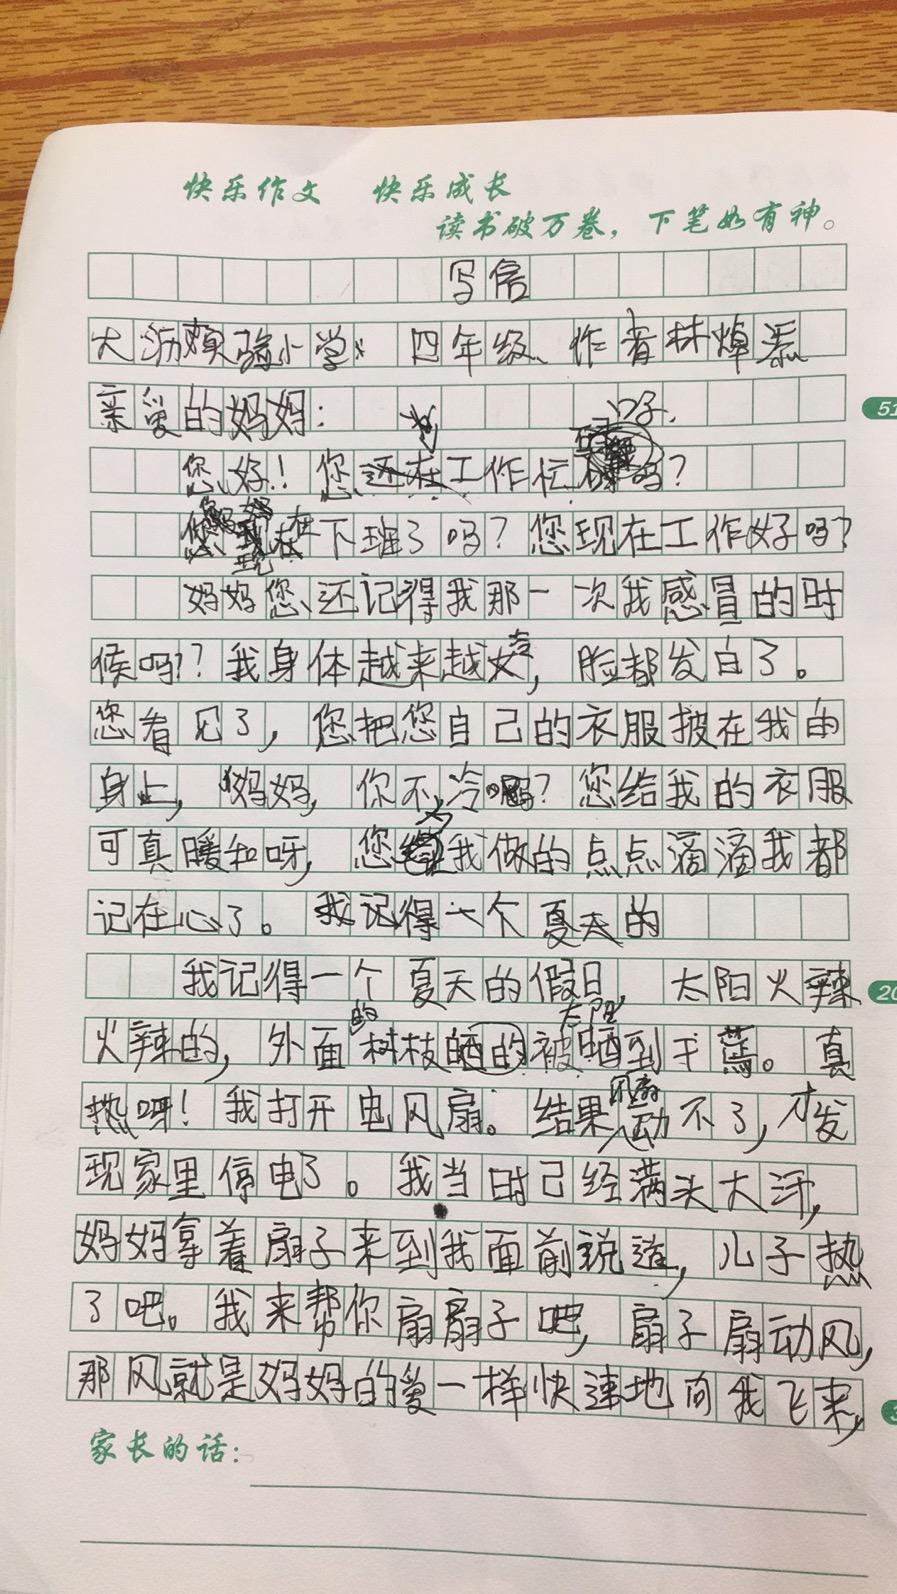 快乐作文 快乐成长
读书破万卷，下笔如有神。
写信
大沥实验小学 四年级、作者林焯
亲爱的妈妈：
您好！您工作忙吗？
在下班了吗？您现在工作好吗？
妈妈您还记得我那一次我感冒的时
候吗？？我身体越来越，脸都发白了。
您看见了，您把您自己的衣服披在我的
身上，妈妈，你不冷吗？您给我的衣服
可真暖和呀，您为我做的点点滴滴我都
记在心了。我记得一个夏天的
我记得一个夏天的假日 太阳火辣
火辣的，外面的树枝晒的被太阳晒到干蔫。真
热呀！我打开电风扇。结果风扇动不了，才发
现家里停电了。我当时已经满头大汗，
妈妈拿着扇子来到我面前说道，儿子热
了吧。我来帮你扇扇子吧，扇子扇动风，
那风就是妈妈的爱一样快速地向我飞来，
家长的话：
51
20